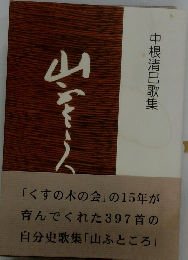 中根清巳歌集
山ふところ
「くすの木の会」の15年が
育んでくれた397首の
自分史歌集「山ふところ」